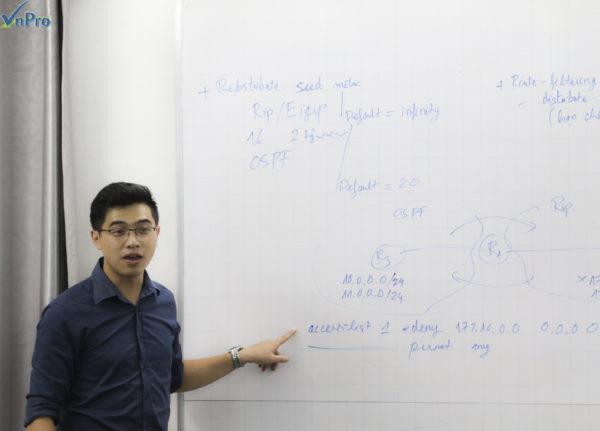 VnPro
+ Redistribute seed metric
Rip/Eigrp
Default = infinity
16
OSPF
Default = 20
+ Route-filtering
- distribute-
OSPF
Rip
R3
R1
10.0.0.0/24
11.0.0.0/24
access-list 1 deny 172.16.0.0 0.0.0.0
permit any